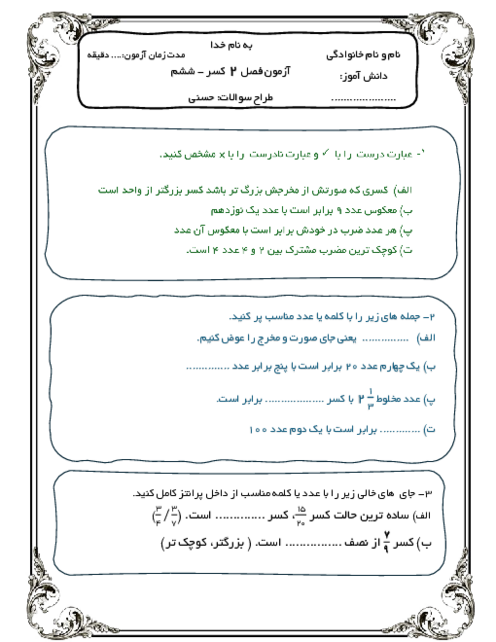 به نام خدا
نام و نام خانوادگی
دانش آموز:
.....................
آزمون فصل 2 کسر – ششم
طراح سوالات: حسنی
مدت زمان آزمون:.... دقیقه
1- عبارت درست را با ✓ و عبارت نادرست را با x مشخص کنید.
الف) کسری که صورتش از مخرجش بزرگ تر باشد کسر بزرگتر از واحد است
ب) معکوس عدد 9 برابر است با عدد یک نوزدهم
پ) هر عدد ضرب در خودش برابر است با معکوس آن عدد
ت) کوچک ترین مضرب مشترک بین 2 و 4 عدد 4 است.
2- جمله های زیر را با کلمه یا عدد مناسب پر کنید.
الف) ............... یعنی جای صورت و مخرج را عوض کنیم.
ب) یک چهارم عدد 20 برابر است با پنج برابر عدد ..............
پ) عدد مخلوط 2 1/3 با کسر ................... برابر است.
ت) ............. برابر است با یک دوم عدد 100
3- جای های خالی زیر را با عدد یا کلمه مناسب از داخل پرانتز کامل کنید.
الف) ساده ترین حالت کسر 15/20، کسر .............. است. (3/7 / 3/4)
ب) کسر 7/9 از نصف ................ است. ( بزرگتر، کوچک تر)